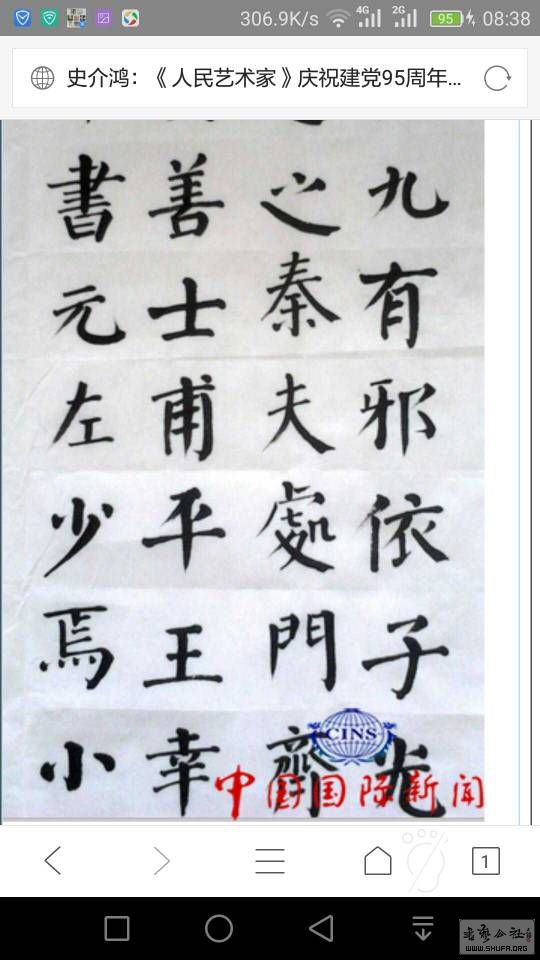 306.9K/s 4G 2G 95 08:38
史介鸿：《人民艺术家》庆祝建党95周年...
九有邪依子光
之秦夫處門齊
善士甫平王幸
書元左少焉小
CINS
中国国际新闻
1
WWW.SHUFA.ORG